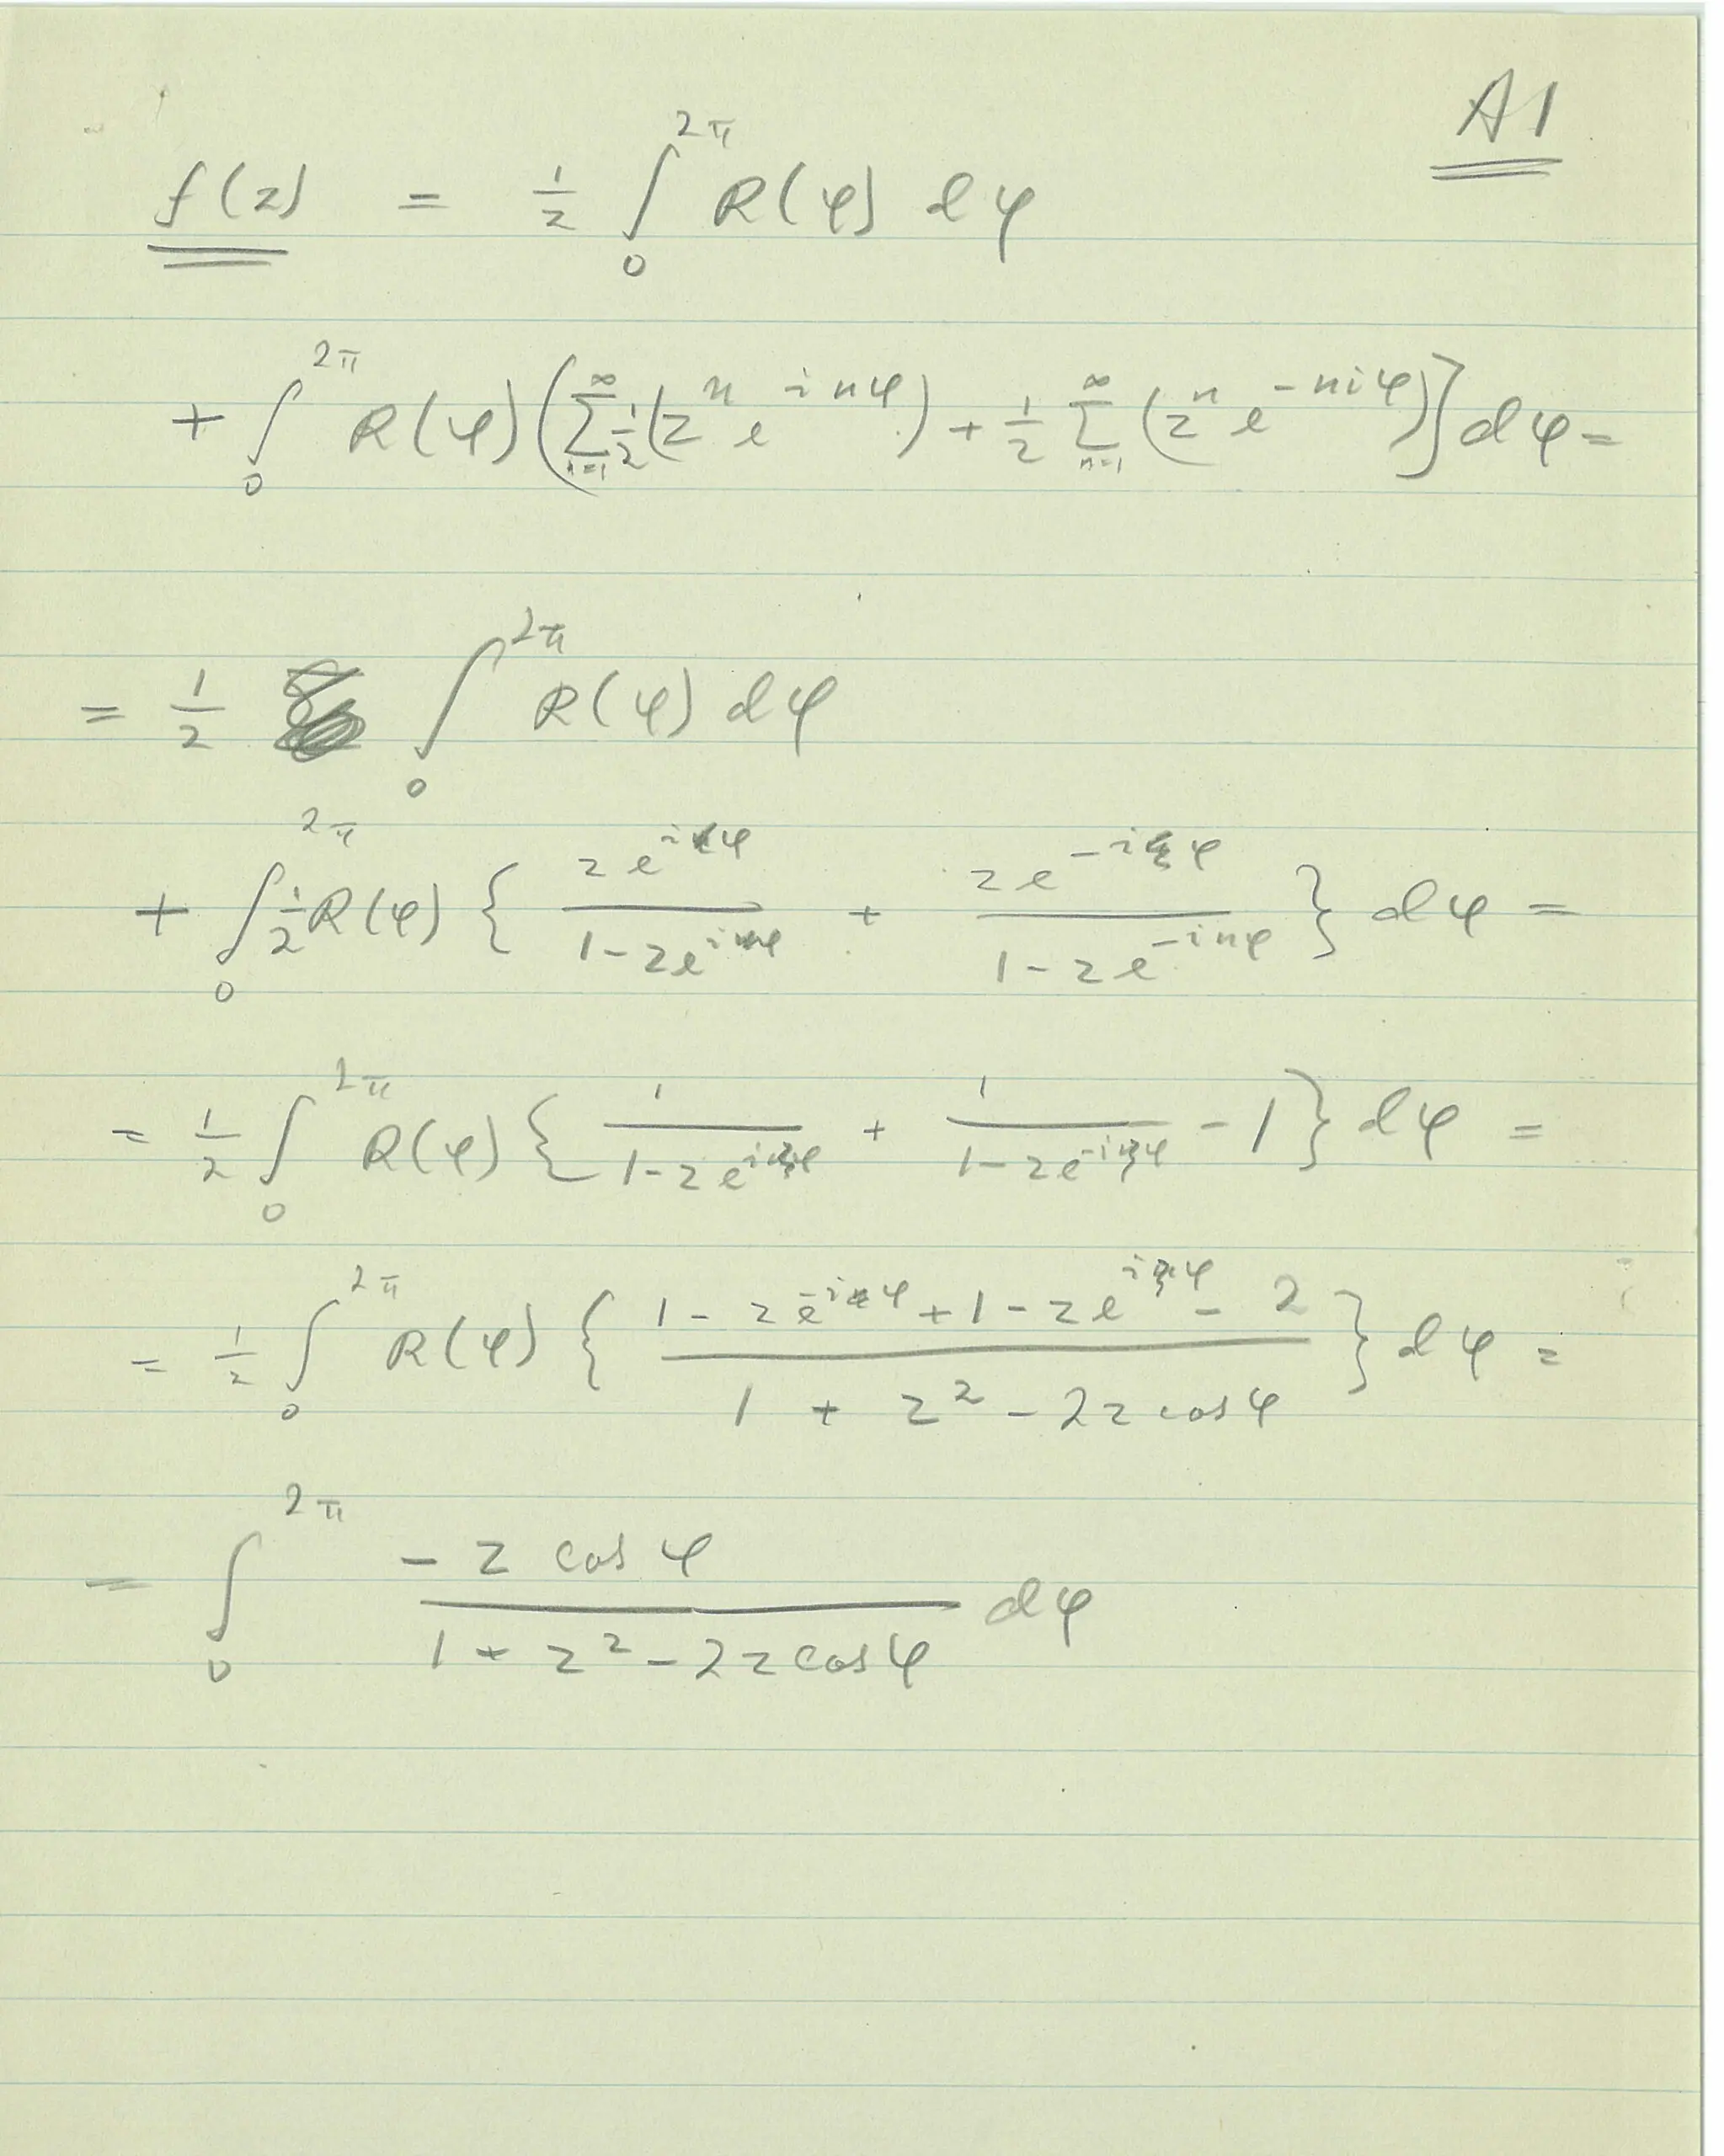 A1
f(z) = 1/2 ∫₀^{2π} R(φ) dφ
+ ∫₀^{2π} R(φ) (∑_{n=1}^∞ 1/2 (zⁿ e^{inφ}) + 1/2 ∑_{n=1}^∞ (zⁿ e^{-niφ})} dφ =
= 1/2 ∫₀^{2π} R(φ) dφ
+ ∫₀^{2π} 1/2 R(φ) { z e^{iφ} / (1 - z e^{iφ}) + z e^{-iφ} / (1 - z e^{-inφ}) } dφ =
= 1/2 ∫₀^{2π} R(φ) { 1 / (1 - z e^{iφ}) + 1 / (1 - z e^{-iφ}) - 1 } dφ =
= 1/2 ∫₀^{2π} R(φ) { (1 - z e^{-iφ} + 1 - z e^{iφ} - 2) / (1 + z² - 2z cos φ) } dφ =
= ∫₀^{2π} (- z cos φ) / (1 + z² - 2z cos φ) dφ